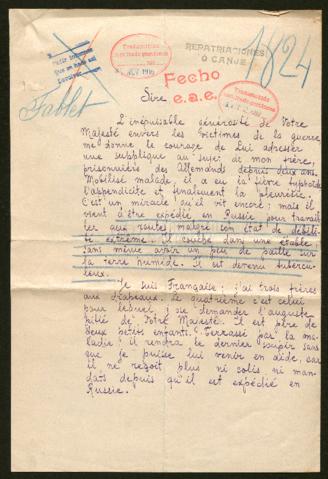 REPATRIACIONES
O CANJE
1824
Fecho
e.a.e.
Tablet
Sire,
L'inépuisable générosité de Votre
Majesté envers les victimes de la guerre
me donne le courage de Lui adresser
une supplique au sujet de mon frère,
prisonnier des Allemands depuis deux ans.
Mobilisé malade, il a eu la fièvre typhoïde
l'appendicite et finalement la pleurésie.
C'est un miracle qu'il vit encore; mais il
vient d'être expédié en Russie pour travail-
ler aux routes malgré son état de débili-
té extrême. Il couche dans une étable,
sans même avoir un peu de paille sur
la terre humide. Il est devenu tubercu-
leux.
Je suis Française; j'ai trois frères
aux drapeaux. Le quatrième c'est celui
pour lequel j'ose demander l'auguste
pitié de Votre Majesté. Il est père de
deux petits enfants. Terrassé par la ma-
ladie il rendra le dernier soupir sans
que je puisse lui venir en aide, car
il ne reçoit plus ni colis ni man-
dats depuis qu'il est expédié en
Russie.